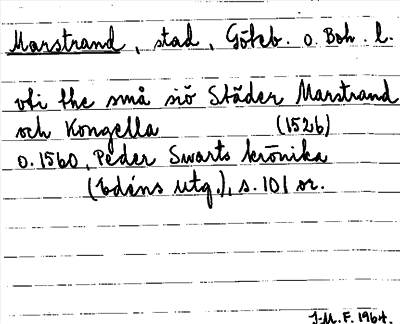 Marstrand, stad, Göteb. o. Boh. l.
vti the små siö Städer Marstrand
och Kongella (1526)
o. 1560, Peder Swarts krönika
(Edéns utg.), s. 101 or.
J.M.F. 1964.